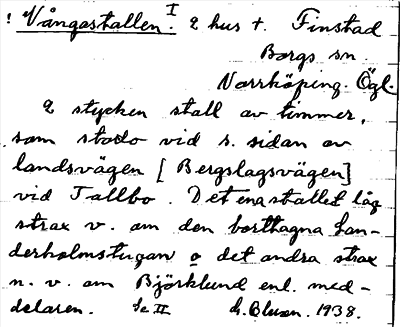 ! Vångastallen. I 2 hus †. Finstad
Borgs sn
Norrköping. Ögl.
2 stycken stall av timmer,
som stodo vid s. sidan av
landsvägen [Bergslagsvägen]
vid Tallbo. Det ena stallet låg
strax v. om den borttagna Lan-
derholmstugan o det andra strax
n. v. om Björklund enl. med-
delaren. Se II 1938.